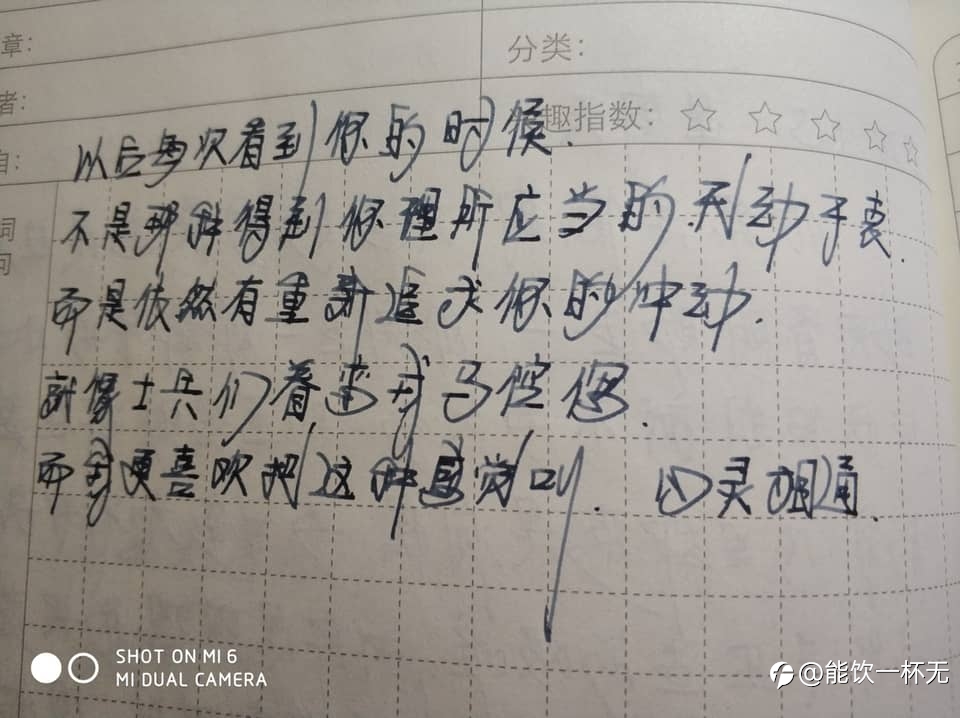 章:
分类:
者:
趣指数:
自:
词
句
以后每次看到你的时候.
不是那种得到你理所应当的无动于衷
而是依然有重新追求你的冲动.
就像士兵们看
而我更喜欢把这种感觉叫. 心灵相通.
SHOT ON MI 6
MI DUAL CAMERA
@能饮一杯无